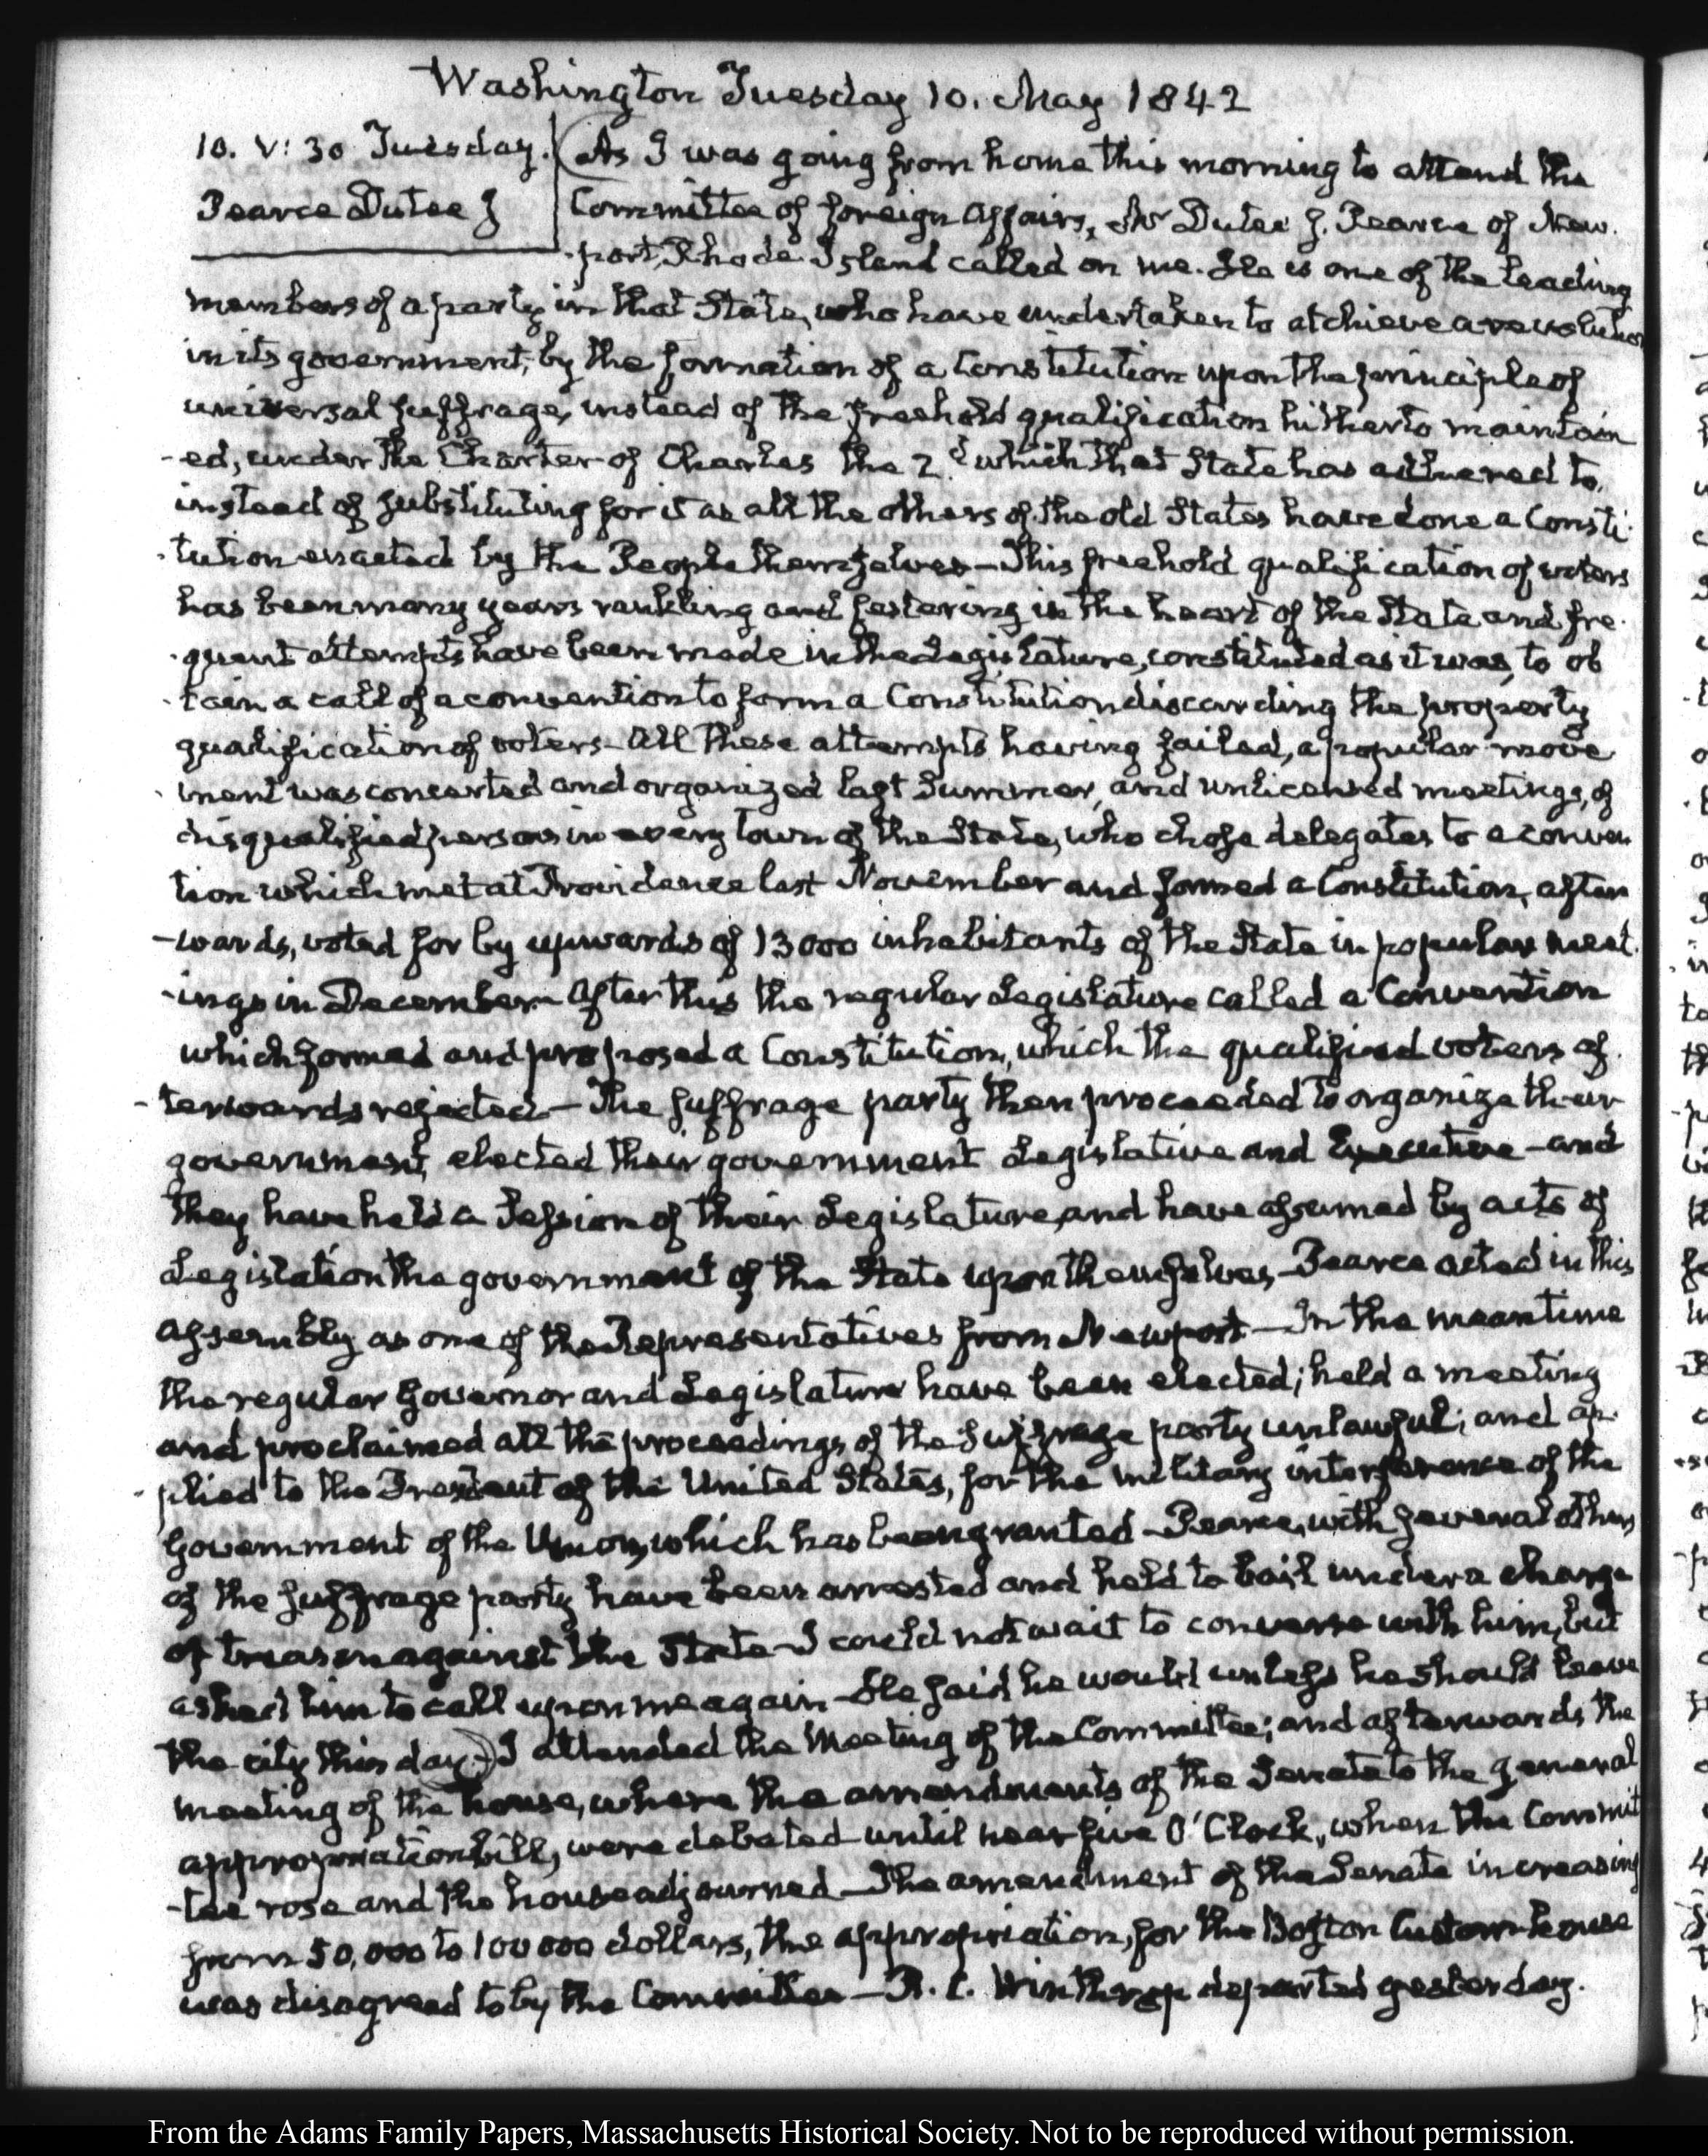 Washington Tuesday 10. May 1842
10. V: 30 Tuesday.
Pearce Dutee J
As I was going from home this morning to attend the
Committee of foreign Affairs, Mr Dutee J. Pearce of New-
-port, Rhode-Island called on me. He is one of the leading
members of a party in that State, who have undertaken to atchieve a revolution
in its government, by the formation of a Constitution upon the principle of
universal suffrage, instead of the freehold qualification hitherto maintain
-ed, under the Charter of Charles the 2d which that State has adhered to,
instead of substituting for it as all the others of the old States have done a Consti-
-tution enacted by the People themselves—This freehold qualification of voters
has been many years rankling and festering in the heart of the State and fre-
-quent attempts have been made in the Legislature, constituted as it was, to ob
-tain a call of a convention to form a Constitution discarding the property
qualification of voters—All these attempts having failed, a popular move
-ment was concerted and organized last Summer, and unlicensed meetings, of
disqualified persons in every town of the State, who chose delegates to a conven
tion which met at Providence last November and formed a Constitution, after
-wards, voted for by upwards of 13000 inhabitants of the State in popular meet-
-ings in December—After this the regular Legislature called a Convention
which formed and proposed a Constitution, which the qualified voters af-
-terwards rejected—The suffrage party then proceeded to organize their
government, elected their government Legislative and Executive—and
they have held a Session of their Legislature, and have assumed by acts of
Legislation the government of the State upon themselves—Pearce acted in this
assembly as one of the Representatives from Newport—In the mean time
the regular Governor and Legislature have been elected; held a meeting
and proclaimed all the proceedings of the suffrage party unlawful; and ap-
-plied to the President of the United States, for the military interference of the
Government of the Union, which has been granted—Pearce, with several others
of the suffrage party have been arrested and held to bail under a charge
of treason against the State—I could not wait to converse with him, but
asked him to call upon me again—He said he would unless he should leave
the city this day.—I attended the Meeting of the Committee; and afterwards the
meeting of the house, where the amendments of the Senate to the general
appropriation bill, were debated until near five O'Clock, when the Commit
-tee rose and the house adjourned—The amendment of the Senate increasing
from 50,000 to 100000 dollars, the appropriation, for the Boston Custom-house
was disagreed to by the Committee—R. C. Winthrop departed yesterday.
From the Adams Family Papers, Massachusetts Historical Society. Not to be reproduced without permission.